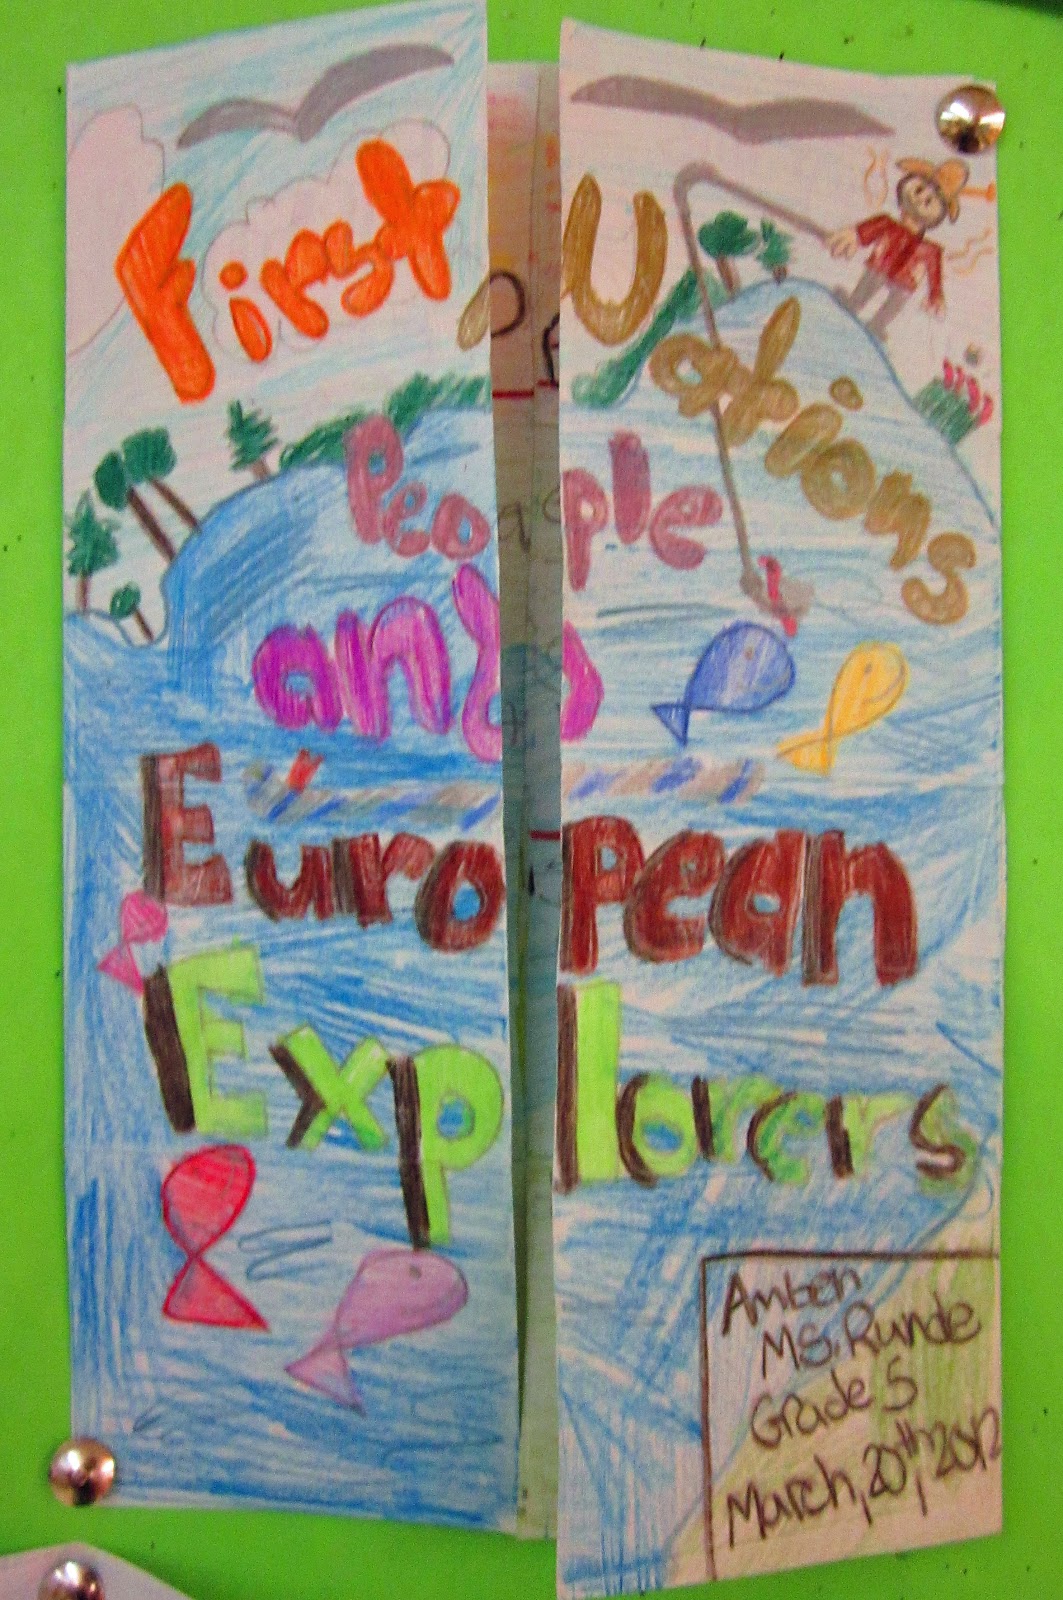 First
Nations
People
and
European
Explorers
Amber
Ms. Runde
Grade 5
March, 20th, 2012